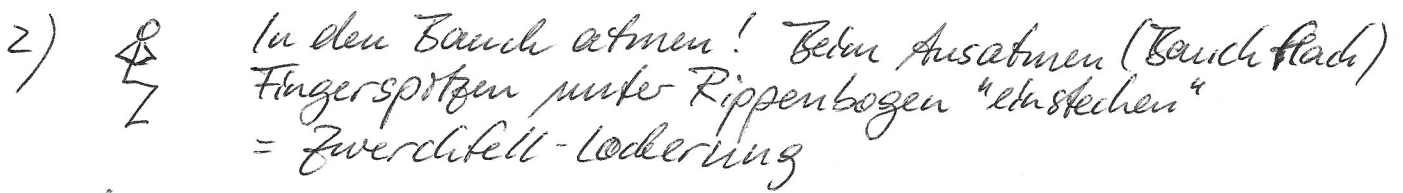 2) In den Bauch atmen! Beim Ausatmen (Bauch flach)
Fingerspitzen unter Rippenbogen "einstechen"
= Zwerchfell-Lockerung